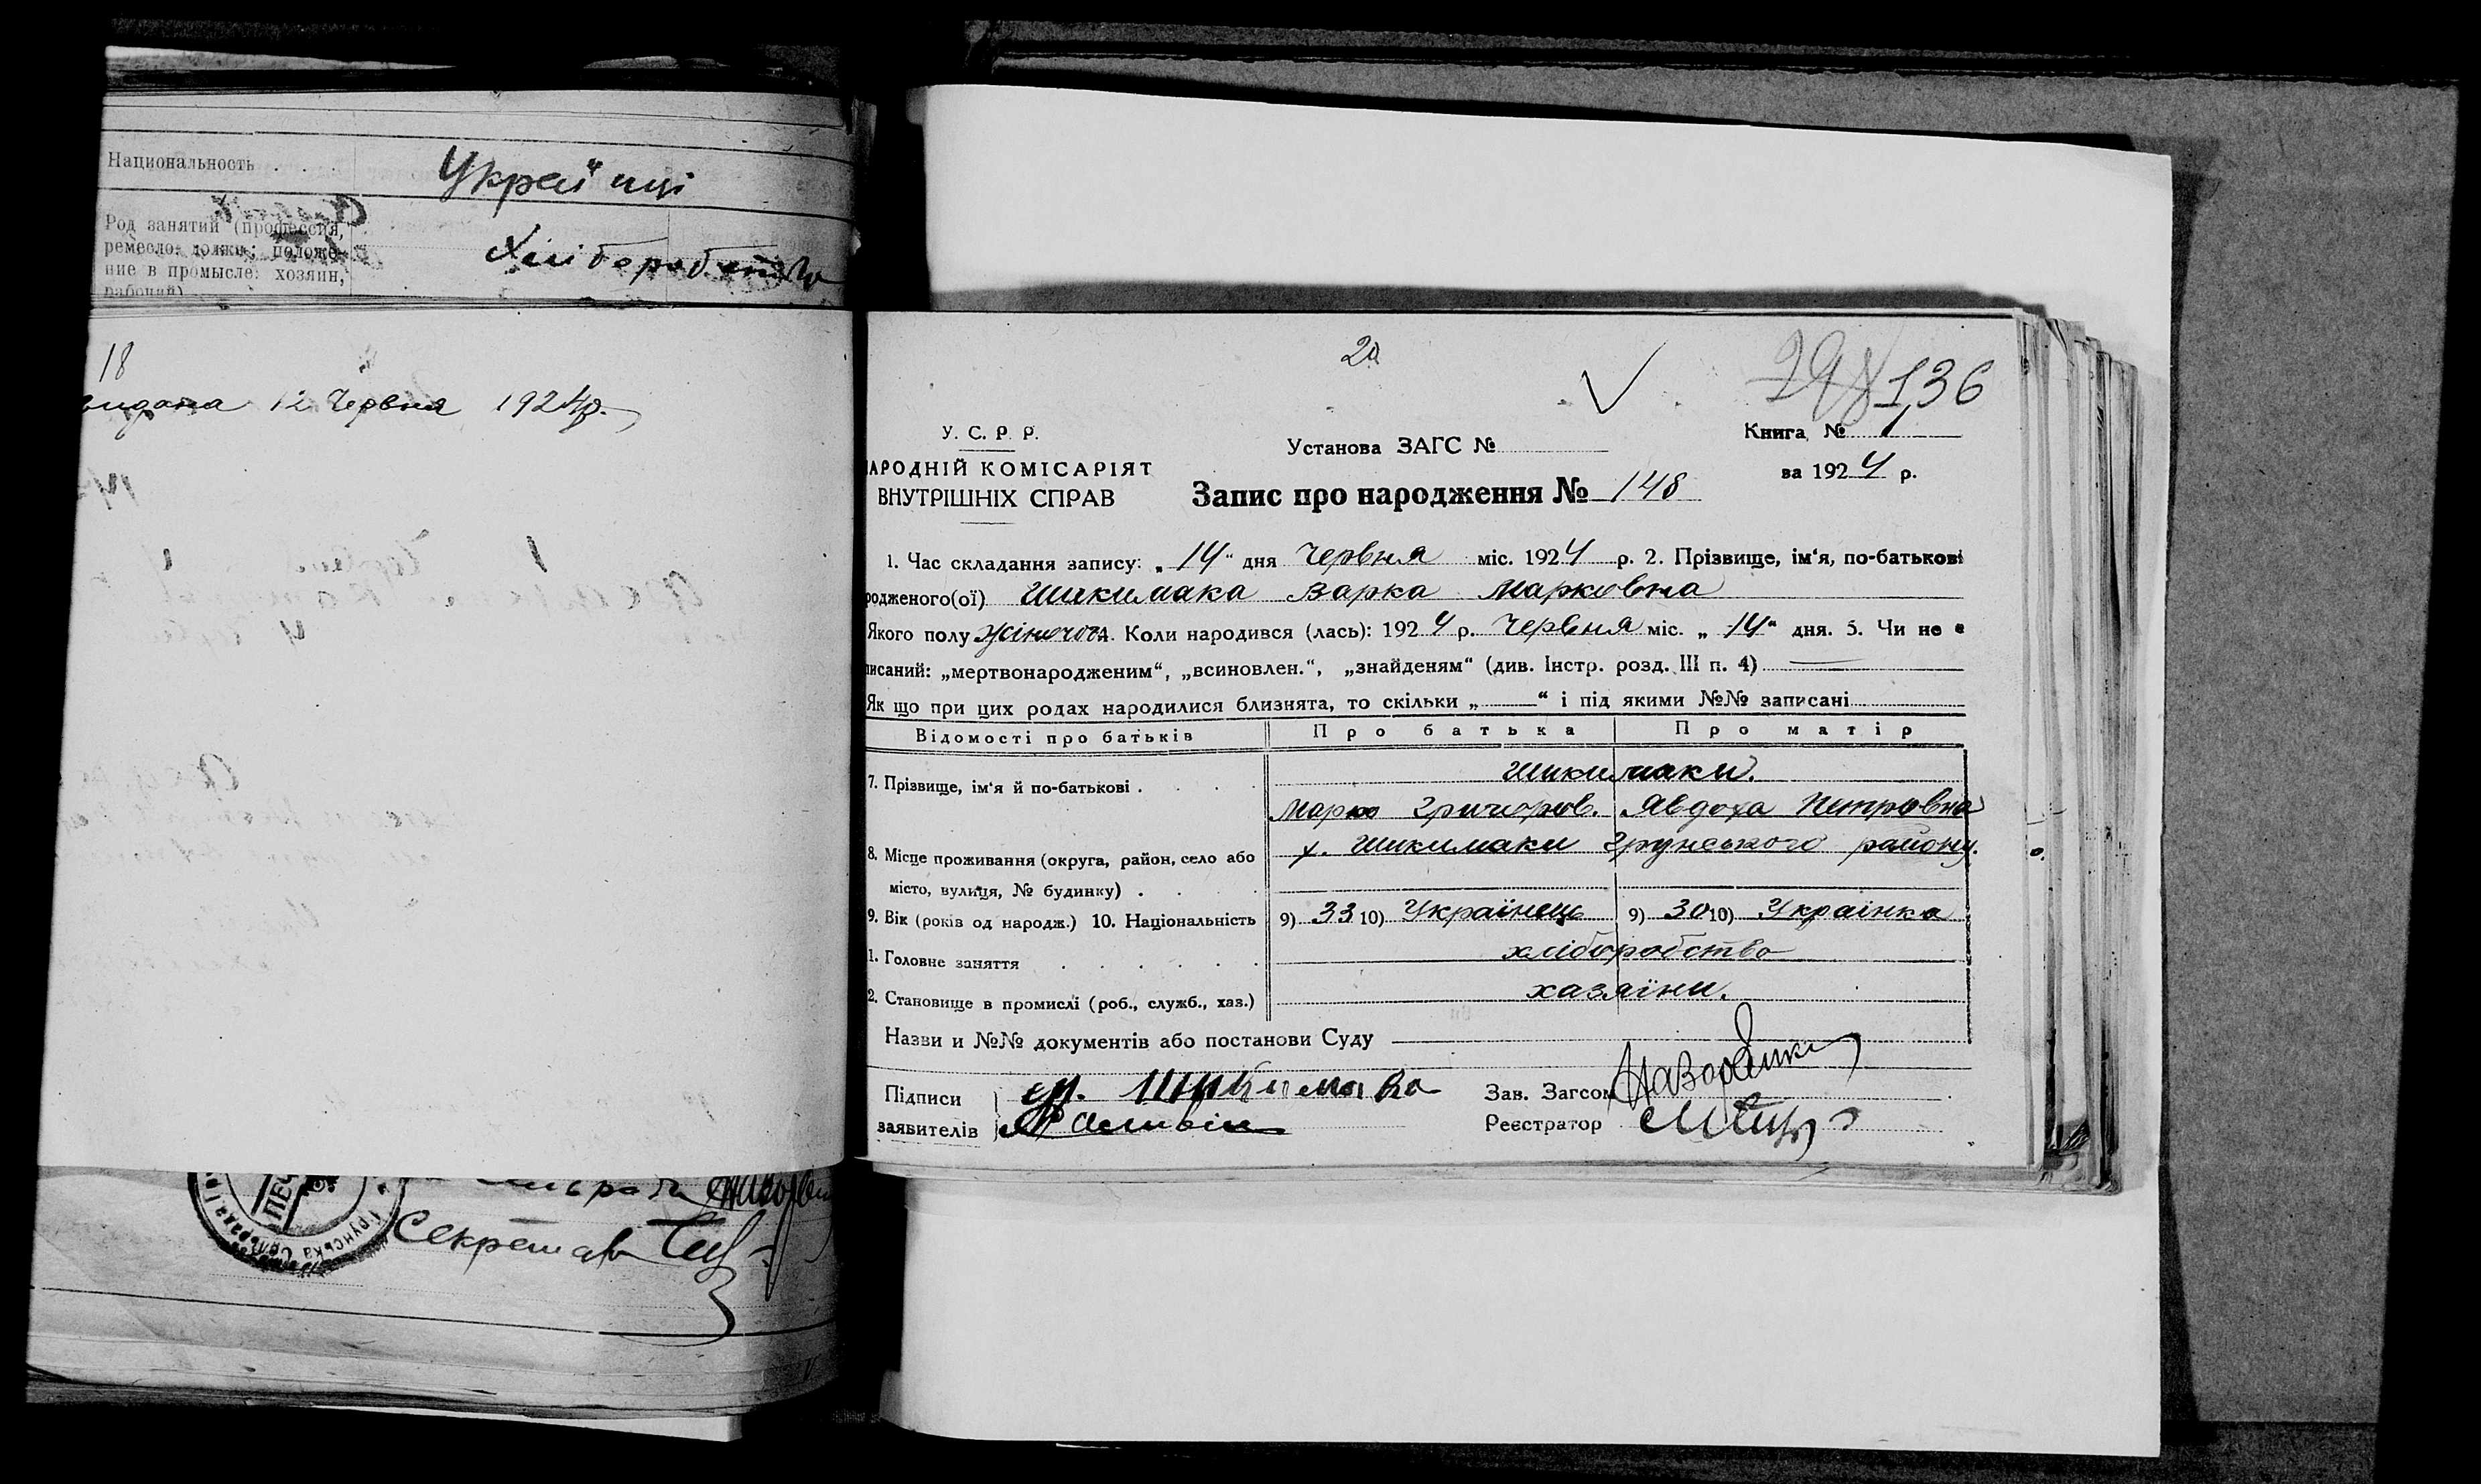 Национальность . . .
Українці
Род занятий (профессия,
ремесло, должн; положе-
ние в промысле: хозяин,
рабочий)
Хліборобство
18
видана 12 Червня 1924р.
Секретар
20
136
У. С. Р. Р.
Книга № 1
Установа ЗАГС №
АРОДНІЙ КОМІСАРІЯТ
за 1924 р.
ВНУТРІШНІХ СПРАВ
Запис про народження № 148
1. Час складання запису: „14“ дня Червня міс. 1924 р. 2. Прізвище, ім‘я, по-батькові
родженого(ої) Шикимака Варка Марковна
Якого полу жіночого 4. Коли народився (лась): 1924 р. Червня міс. „14“ дня. 5. Чи не є
писаний: „мертвонародженим“, „всиновлен.“, „знайденям“ (див. Інстр. розд. III п. 4)
Як що при цих родах народилися близнята, то скільки „ “ і під якими №№ записані
Відомості про батьків Про батька Про матір
Шикимаки.
7. Прізвище, ім‘я й по-батькові .
Марко Григоров. Явдоха Петровна
х. Шикимаки Грунського району.
8. Місце проживання (округа, район, село або
місто, вулиця, № будинку) .
9. Вік (років од народж.) 10. Національність 9) 33 10) Українець 9) 30 10) Українка
1. Головне заняття хліборобство
2. Становище в промислі (роб., служб., хаз.) хазяїни.
Назви и №№ документів або постанови Суду
Підписи гр. Шикимака
Зав. Загсом
заявителів
Реєстратор